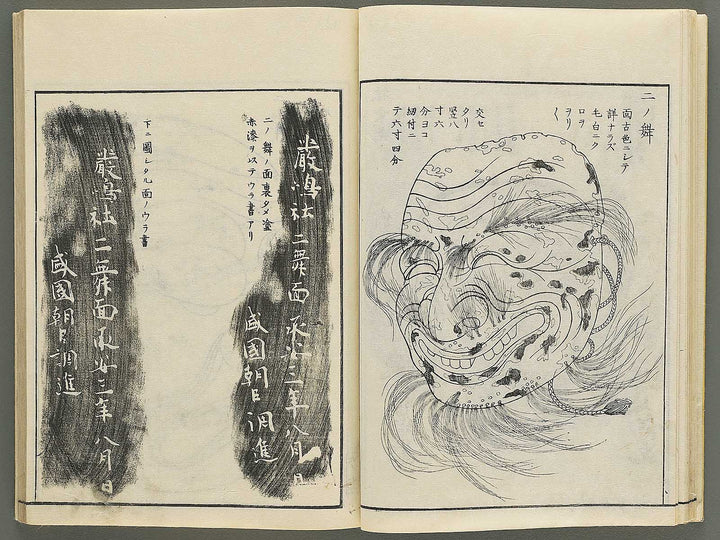 二ノ舞
面古色ニシテ
詳ナラズ
毛白ニク
ロヲ
ヲリ
交セ
タリ
竪八
寸六
分ヨコ
紐付ニ
テ六寸四分
嚴嶋社二舞面承安三年八月日
盛國朝臣調進
二ノ舞ノ面裏タメ塗
赤漆ヲ以テウラ書アリ
下ニ圖シタル面ノウラ書
嚴嶋社二舞面承安三年八月日
盛國朝臣調進